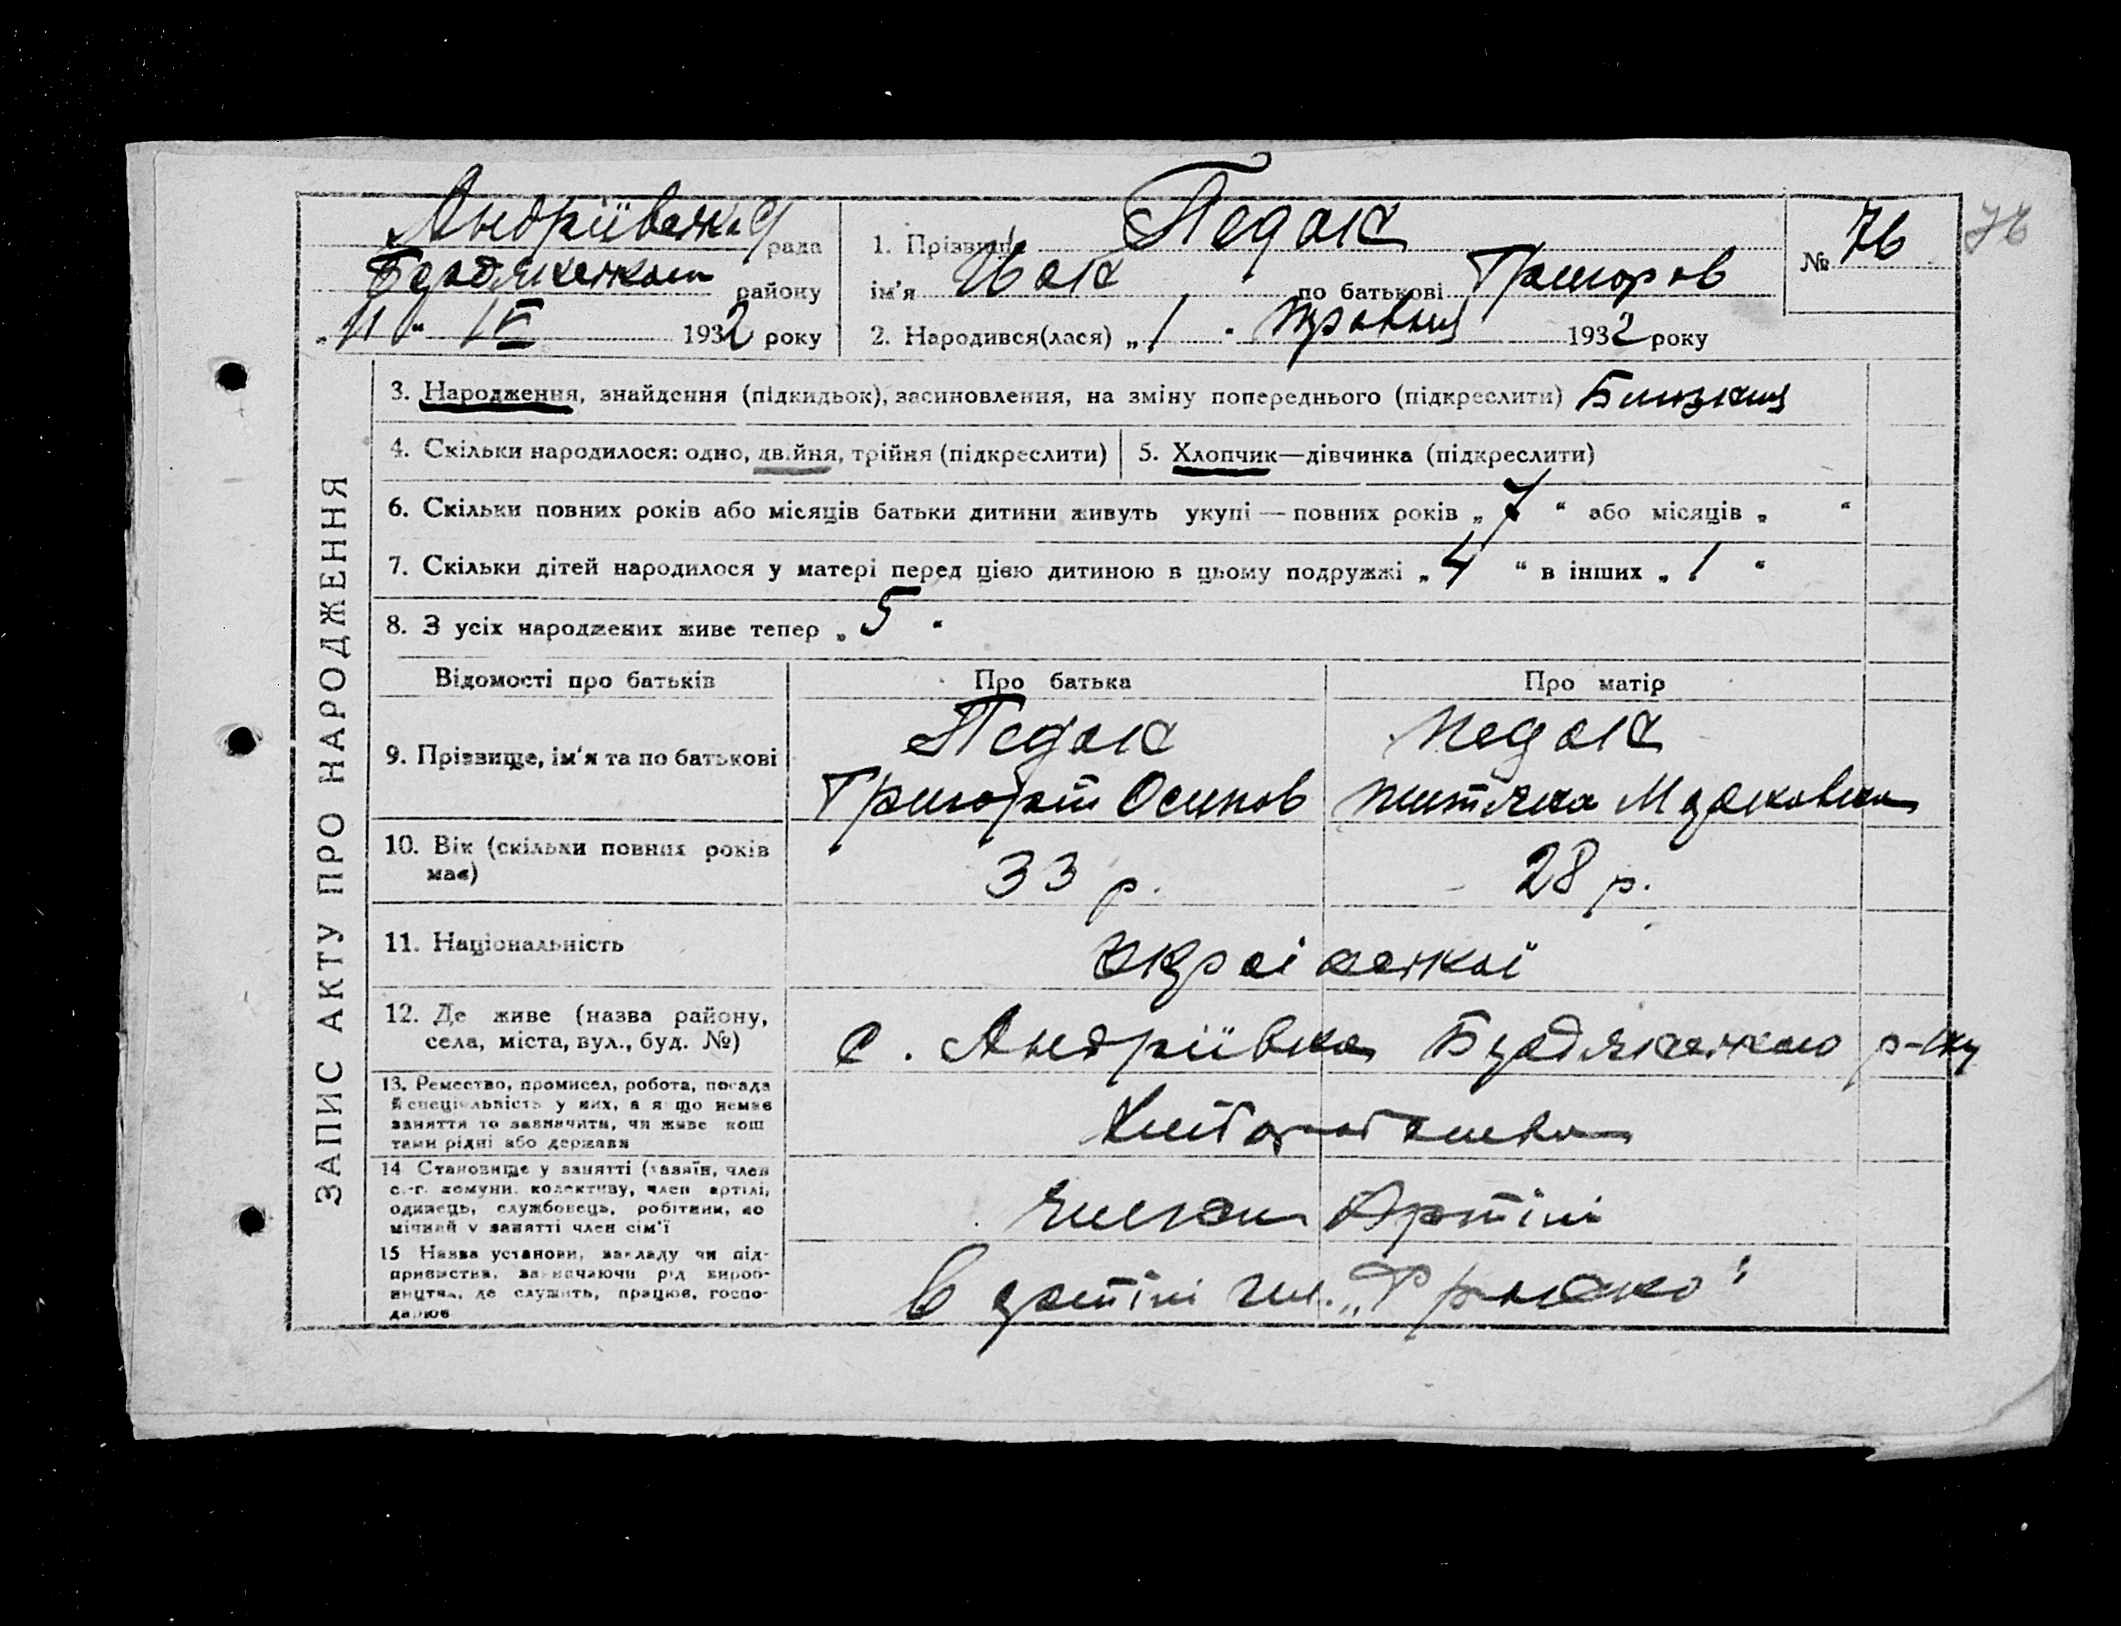 Андріївська рада
Бердянського району
„11“ IV 1932 року
1. Прізвище Педак
ім'я Іван по батькові Григоров
2. Народився(лася) „1“ травня 1932 року
№ 76
76
ЗАПИС АКТУ ПРО НАРОДЖЕННЯ
3. Народження, знайдення (підкидьок), засиновлення, на зміну попереднього (підкреслити) Близнец
4. Скільки народилося: одно, двійня, трійня (підкреслити)
5. Хлопчик—дівчинка (підкреслити)
6. Скільки повних років або місяців батьки дитини живуть укупі — повних років „7“ або місяців „ “
7. Скільки дітей народилося у матері перед цією дитиною в цьому подружжі „4“ в інших „1“
8. З усіх народжених живе тепер „5“
Відомості про батьків Про батька Про матір
9. Прізвище, ім'я та по батькові
Педак Педак
Григорій Осипов
10. Вік (скільки повних років має)
33 р. 28 р.
11. Національність
української
12. Де живе (назва району,
села, міста, вул., буд. №)
с. Андріївка Бердянського р-ну
13. Ремество, промисел, робота, посада
й спеціяльність у них, а якщо немає
заняття то зазначити, чи живе кош
тами рідні або держави
Хліборобство
14. Становище у занятті (хазяїн, член
с.-г. комуни, колективу, член артілі,
одинець, службовець, робітник, по
мічний у занятті член сім'ї
член Артіли
15. Назва установи, закладу чи під-
приємства, зазначаючи рід вироб-
ництва, де служить, працює, госпо-
дарює
в артілі ім. „Франко“